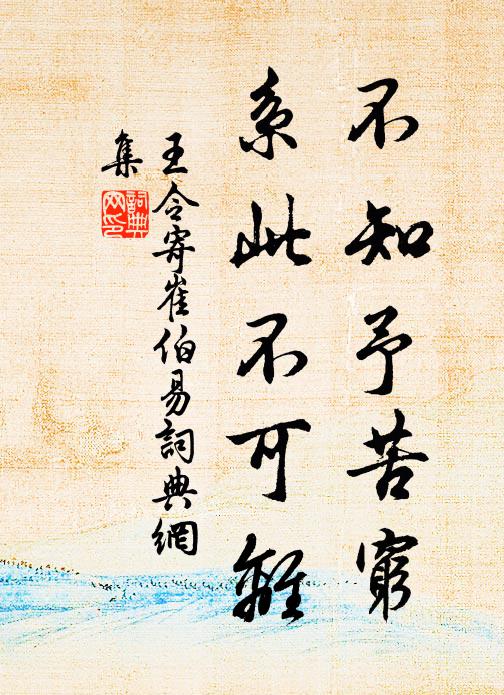 不知予苦窮
系此不可離
王令寄崔伯易詞典網
集
詞典
网印